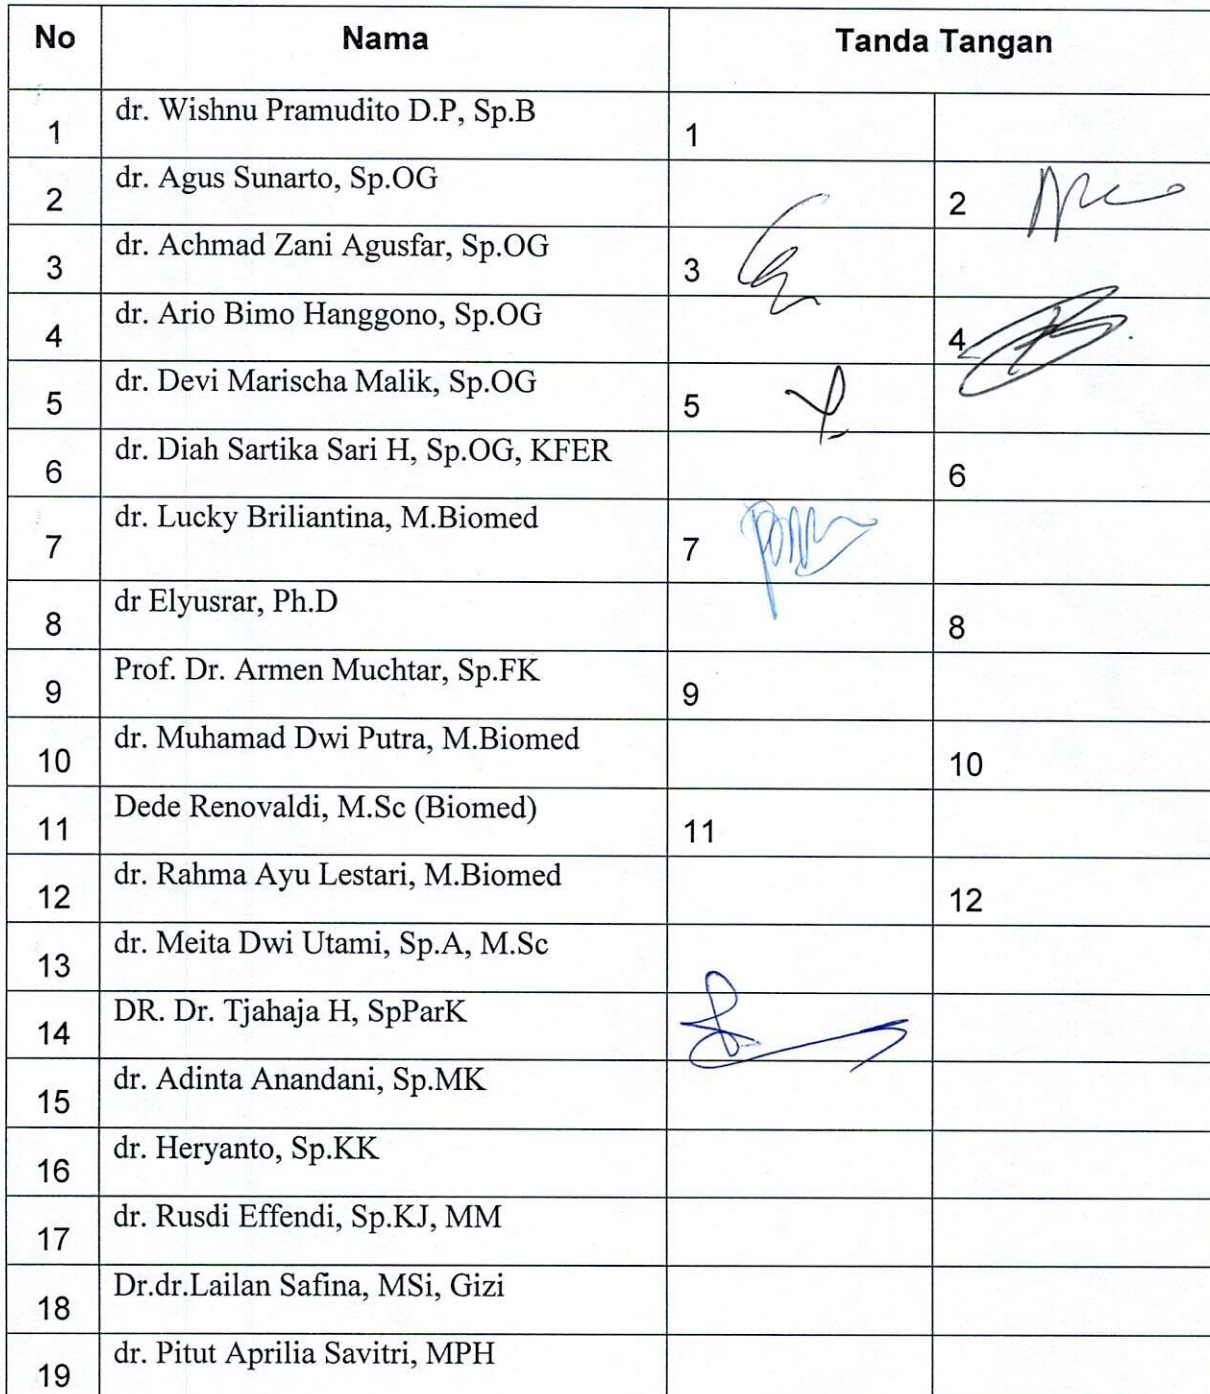 No Nama Tanda Tangan
1 dr. Wishnu Pramudito D.P, Sp.B 1
2 dr. Agus Sunarto, Sp.OG 2
3 dr. Achmad Zani Agusfar, Sp.OG 3
4 dr. Ario Bimo Hanggono, Sp.OG 4
5 dr. Devi Marischa Malik, Sp.OG 5
6 dr. Diah Sartika Sari H, Sp.OG, KFER 6
7 dr. Lucky Briliantina, M.Biomed 7
8 dr Elyusrar, Ph.D 8
9 Prof. Dr. Armen Muchtar, Sp.FK 9
10 dr. Muhamad Dwi Putra, M.Biomed 10
11 Dede Renovaldi, M.Sc (Biomed) 11
12 dr. Rahma Ayu Lestari, M.Biomed 12
13 dr. Meita Dwi Utami, Sp.A, M.Sc
14 DR. Dr. Tjahaja H, SpParK
15 dr. Adinta Anandani, Sp.MK
16 dr. Heryanto, Sp.KK
17 dr. Rusdi Effendi, Sp.KJ, MM
18 Dr.dr.Lailan Safina, MSi, Gizi
19 dr. Pitut Aprilia Savitri, MPH